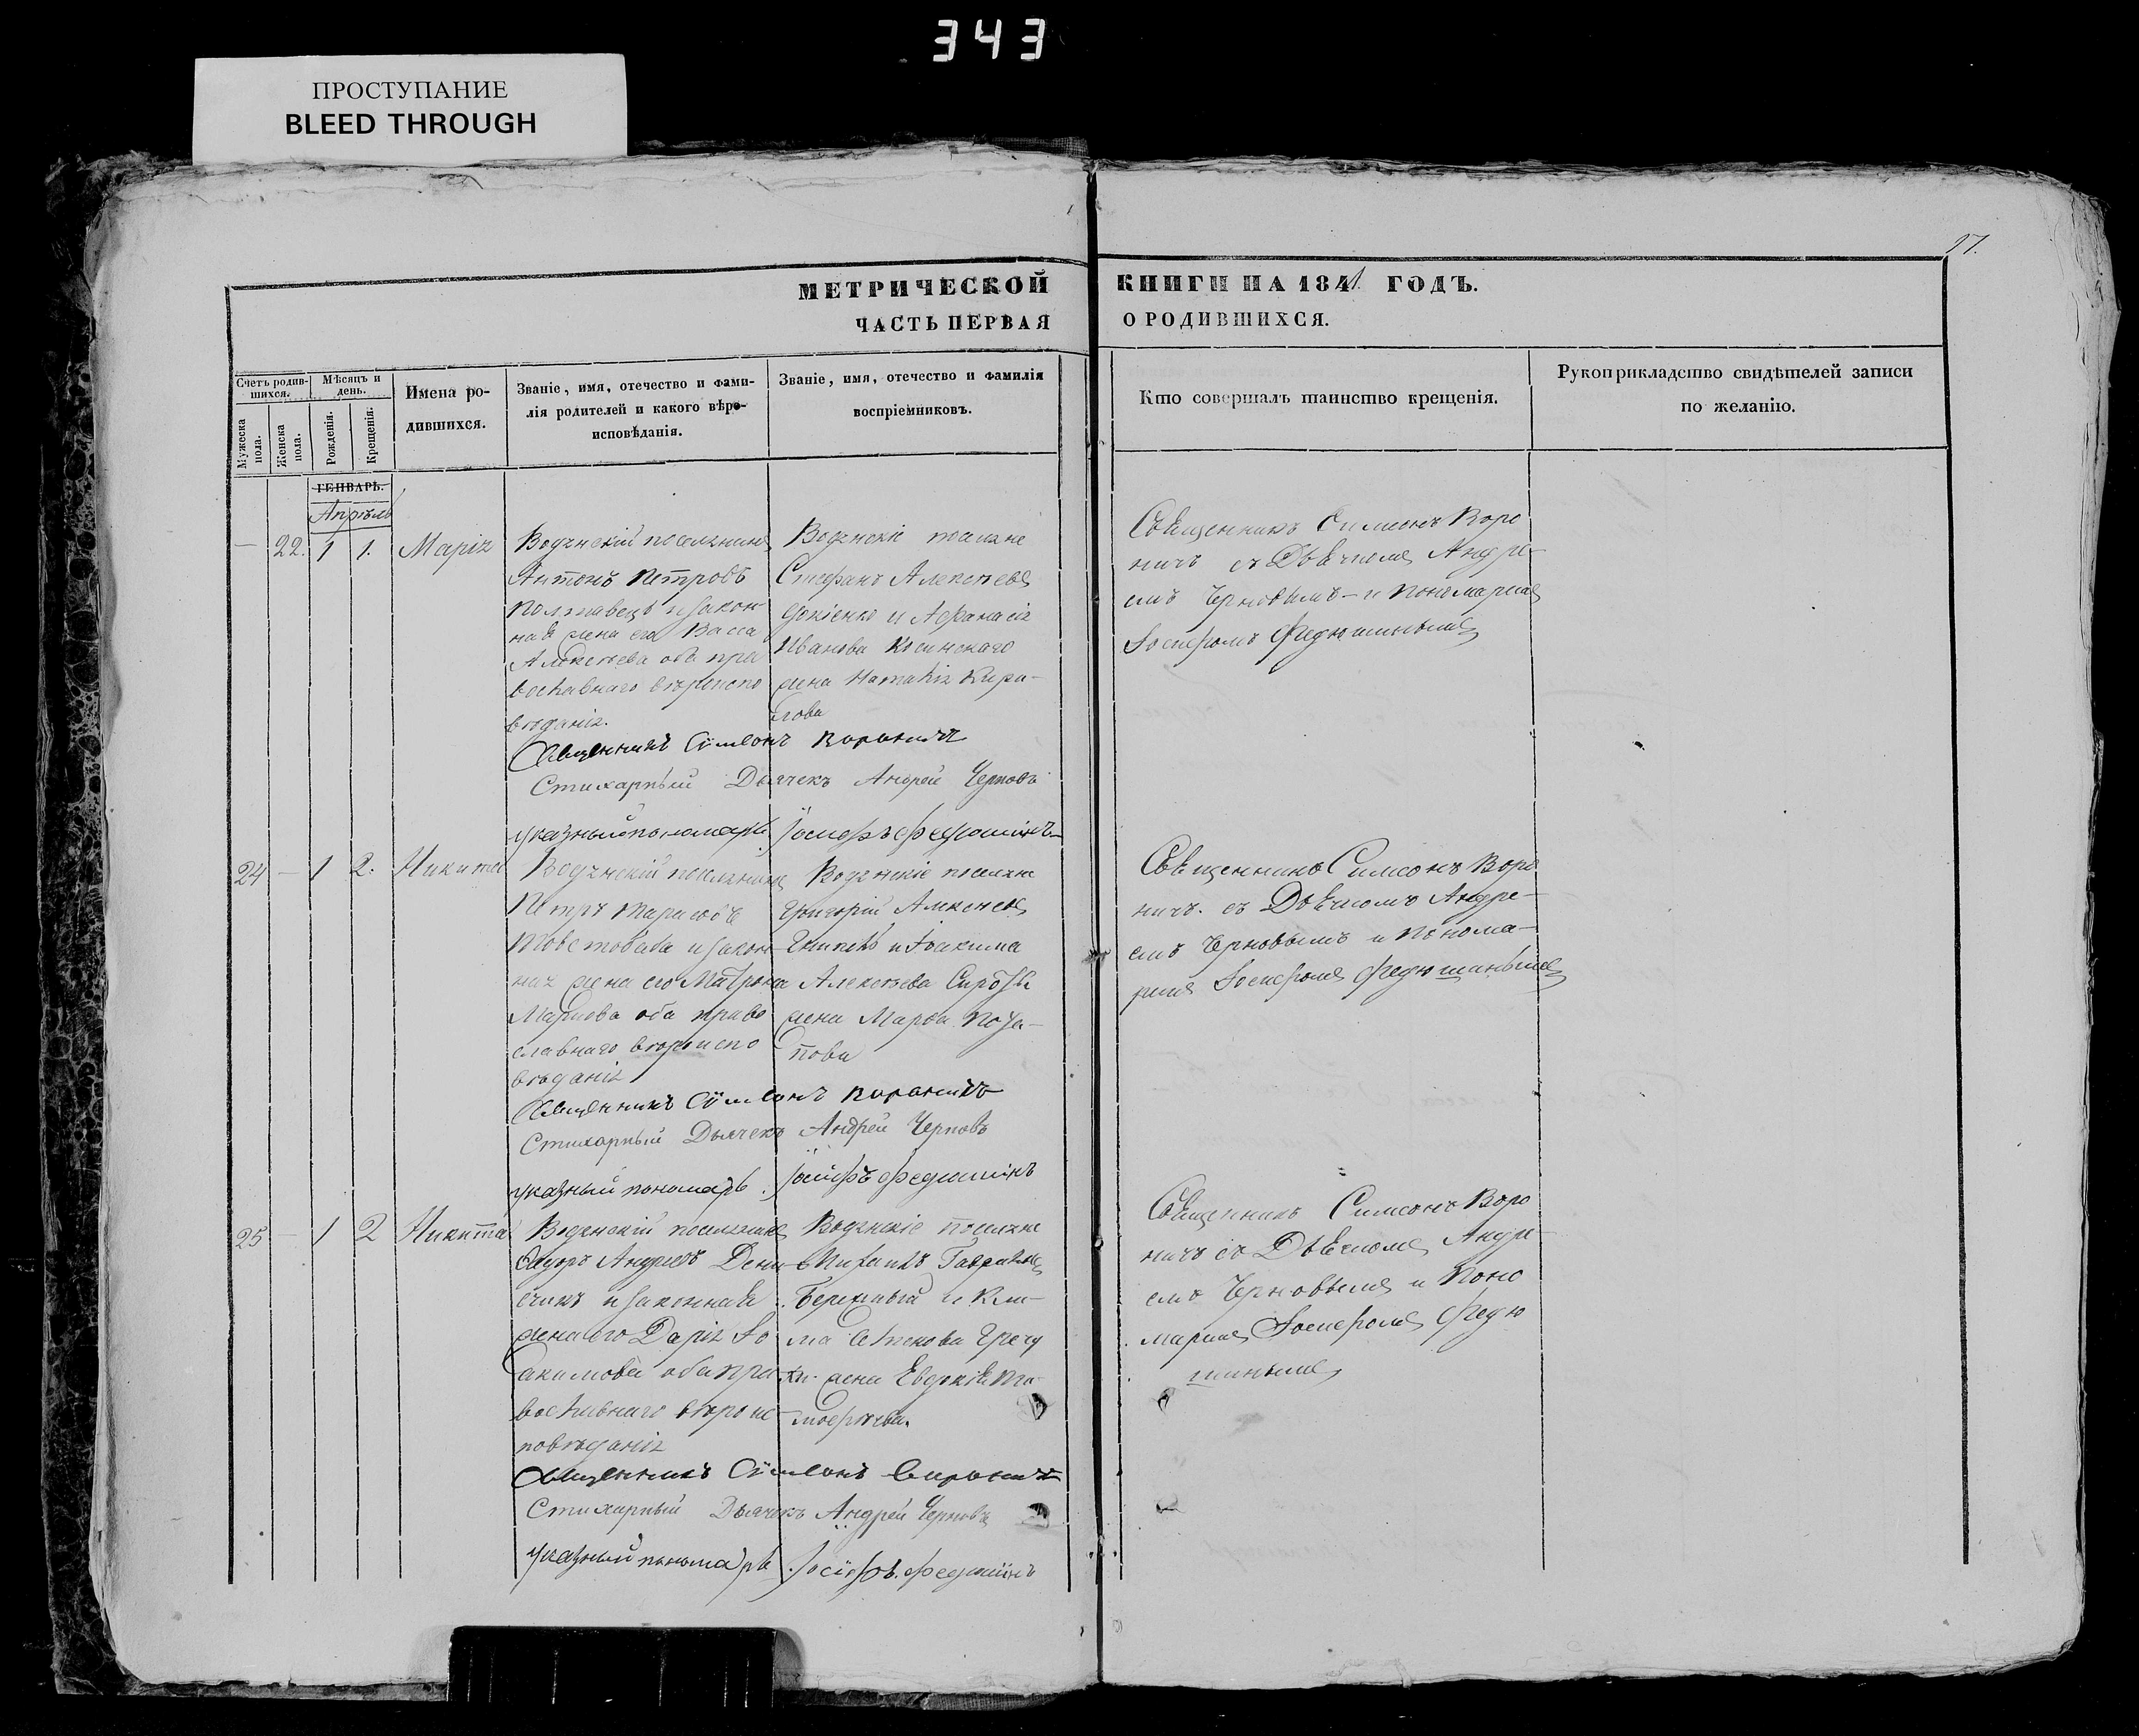 343
ПРОСТУПАНИЕ
BLEED THROUGH
17.
МЕТРИЧЕСКОЙ КНИГИ НА 1841. ГОДЪ.
ЧАСТЬ ПЕРВАЯ О РОДИВШИХСЯ.
Счетъ родив-
шихся.
Мужеска
пола.
Женска
пола.
Мѣсяцъ и
день.
Рожденія.
Крещенія.
Имена ро-
дившихся.
Званіе, имя, отечество и фами-
лія родителей и какого вѣро-
исповѣданія.
Званіе, имя, отечество и фамилія
воспріемниковъ.
Кто совершалъ таинство крещенія.
Рукоприкладство свидѣтелей записи
по желанію.
ГЕНВАРЬ.
Апрѣль
— 22. 1 1. Марія
Водянскій поселянинъ
Антонъ Петровъ
Полтавецъ и закон-
ная жена его Васса
Алексѣева оба пра
вославнаго вѣроиспо
вѣданія.
Водянскіе поселяне
Стефанъ Алексѣевъ
и Афанасія
Иванова
жена Наталія Кири-
лова
Священникъ Симеонъ Воро
ничъ съ Дьячкомъ Андре-
емъ Черновымъ и Пономаремъ
Іосифомъ Федюшинымъ
Священникъ Сѵмеонъ Вороничъ
Стихарный Дьячекъ Андрей Черновъ
указный пономарь Іосифъ Федюшинъ
24 — 1 2. Никита
Водянскій поселянинъ
Петръ Тарасовъ
и закон-
ная жена его Матрона
Маркова оба право
славнаго вѣроиспо
вѣданія
Водянскіе поселяне
Григорій Алексѣевъ
и Іоакима
Алексѣева
жена Марѳа Пота-
пова
Священникъ Симеонъ Воро
ничъ. съ Дьячкомъ Андре-
емъ Черновымъ и Понома-
ремъ Іосифомъ Федюшинымъ
Священникъ Сѵмеонъ Вороничъ
Стихарный Дьячекъ Андрей Черновъ
указный пономарь. Іосифъ Федюшинъ
25 — 1 2 Никита
Водянскій поселянинъ
Сидоръ Андреевъ Дени-
и законная
жена его Дарія Іо
акимова оба пра
вославнаго вѣроис
повѣданія
Водянскіе поселяне
Бережный и Кли-
ма
жена Евдокія Ти-
моѳеѣва.
Священникъ Симеонъ Воро
ничъ съ Дьячкомъ Андре
емъ Черновымъ и Поно
маремъ Іосифомъ Федю
шинымъ
Священникъ Сѵмеонъ Вороничъ
Стихарный Дьячекъ Андрей Черновъ
указный пономарь Іосифъ. Федюшинъ